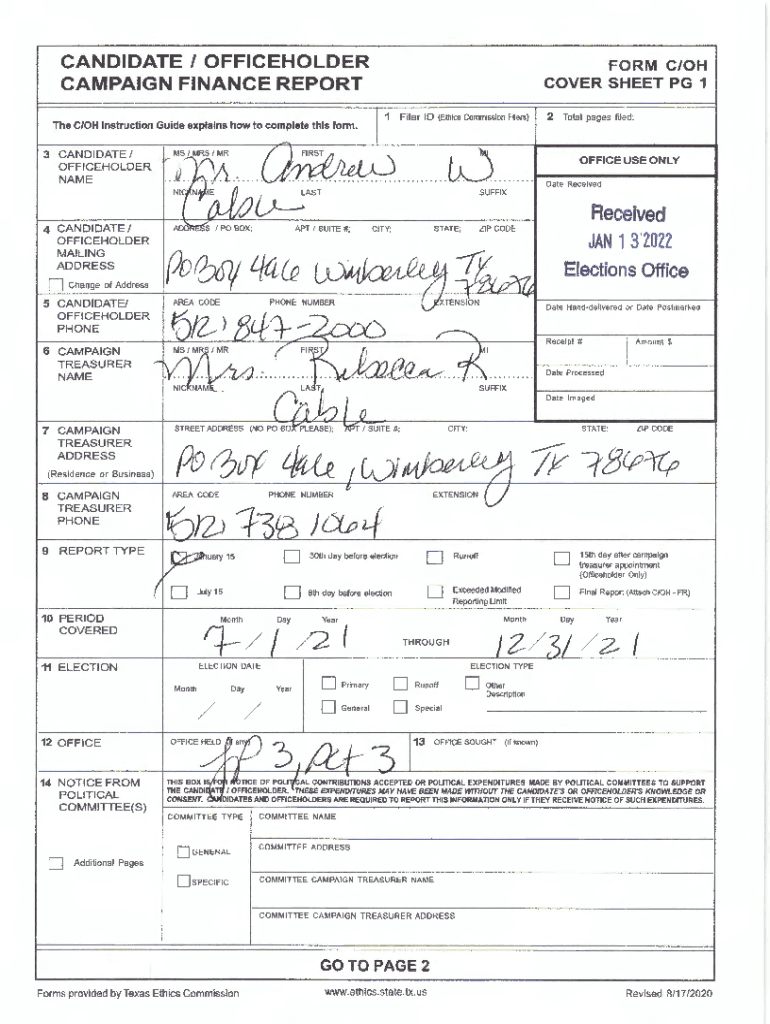 CANDIDATE / OFFICEHOLDER
CAMPAIGN FINANCE REPORT
FORM C/OH
COVER SHEET PG 1
The C/OH Instruction Guide explains how to complete this form.
1 Filer ID (Ethics Commission Filers)
2 Total pages filed:
3 CANDIDATE / OFFICEHOLDER NAME
MS / MRS / MR FIRST MI
Mr. Andrew W
NICKNAME LAST SUFFIX
Cable
OFFICE USE ONLY
Date Received
Received
JAN 13 2022
Elections Office
4 CANDIDATE / OFFICEHOLDER MAILING ADDRESS
Change of Address
ADDRESS / PO BOX; APT / SUITE #; CITY; STATE; ZIP CODE
PO Box Wimberley TX
78676
5 CANDIDATE/ OFFICEHOLDER PHONE
AREA CODE PHONE NUMBER EXTENSION
(512) 847-2000
Date Hand-delivered or Date Postmarked
Receipt # Amount $
Date Processed
Date Imaged
6 CAMPAIGN TREASURER NAME
MS / MRS / MR FIRST MI
Mrs. Rebecca R
NICKNAME LAST SUFFIX
Cable
7 CAMPAIGN TREASURER ADDRESS
(Residence or Business)
STREET ADDRESS (NO PO BOX PLEASE); APT / SUITE #; CITY; STATE; ZIP CODE
PO Box , Wimberley TX 78676
8 CAMPAIGN TREASURER PHONE
AREA CODE PHONE NUMBER EXTENSION
(512) 738 1064
9 REPORT TYPE
January 15
30th day before election
Runoff
15th day after campaign treasurer appointment (Officeholder Only)
July 15
8th day before election
Exceeded Modified Reporting Limit
Final Report (Attach C/OH - FR)
10 PERIOD COVERED
Month Day Year
7 / 1 / 21
THROUGH
Month Day Year
12 / 31 / 21
11 ELECTION
ELECTION DATE
Month Day Year
/ /
ELECTION TYPE
Primary
Runoff
Other Description
General
Special
12 OFFICE
OFFICE HELD (if any)
JP 3, Pct 3
13 OFFICE SOUGHT (if known)
14 NOTICE FROM POLITICAL COMMITTEE(S)
THIS BOX IS FOR NOTICE OF POLITICAL CONTRIBUTIONS ACCEPTED OR POLITICAL EXPENDITURES MADE BY POLITICAL COMMITTEES TO SUPPORT
THE CANDIDATE / OFFICEHOLDER. THESE EXPENDITURES MAY HAVE BEEN MADE WITHOUT THE CANDIDATE'S OR OFFICEHOLDER'S KNOWLEDGE OR
CONSENT. CANDIDATES AND OFFICEHOLDERS ARE REQUIRED TO REPORT THIS INFORMATION ONLY IF THEY RECEIVE NOTICE OF SUCH EXPENDITURES.
Additional Pages
COMMITTEE TYPE
GENERAL
SPECIFIC
COMMITTEE NAME
COMMITTEE ADDRESS
COMMITTEE CAMPAIGN TREASURER NAME
COMMITTEE CAMPAIGN TREASURER ADDRESS
GO TO PAGE 2
Forms provided by Texas Ethics Commission
www.ethics.state.tx.us
Revised 8/17/2020